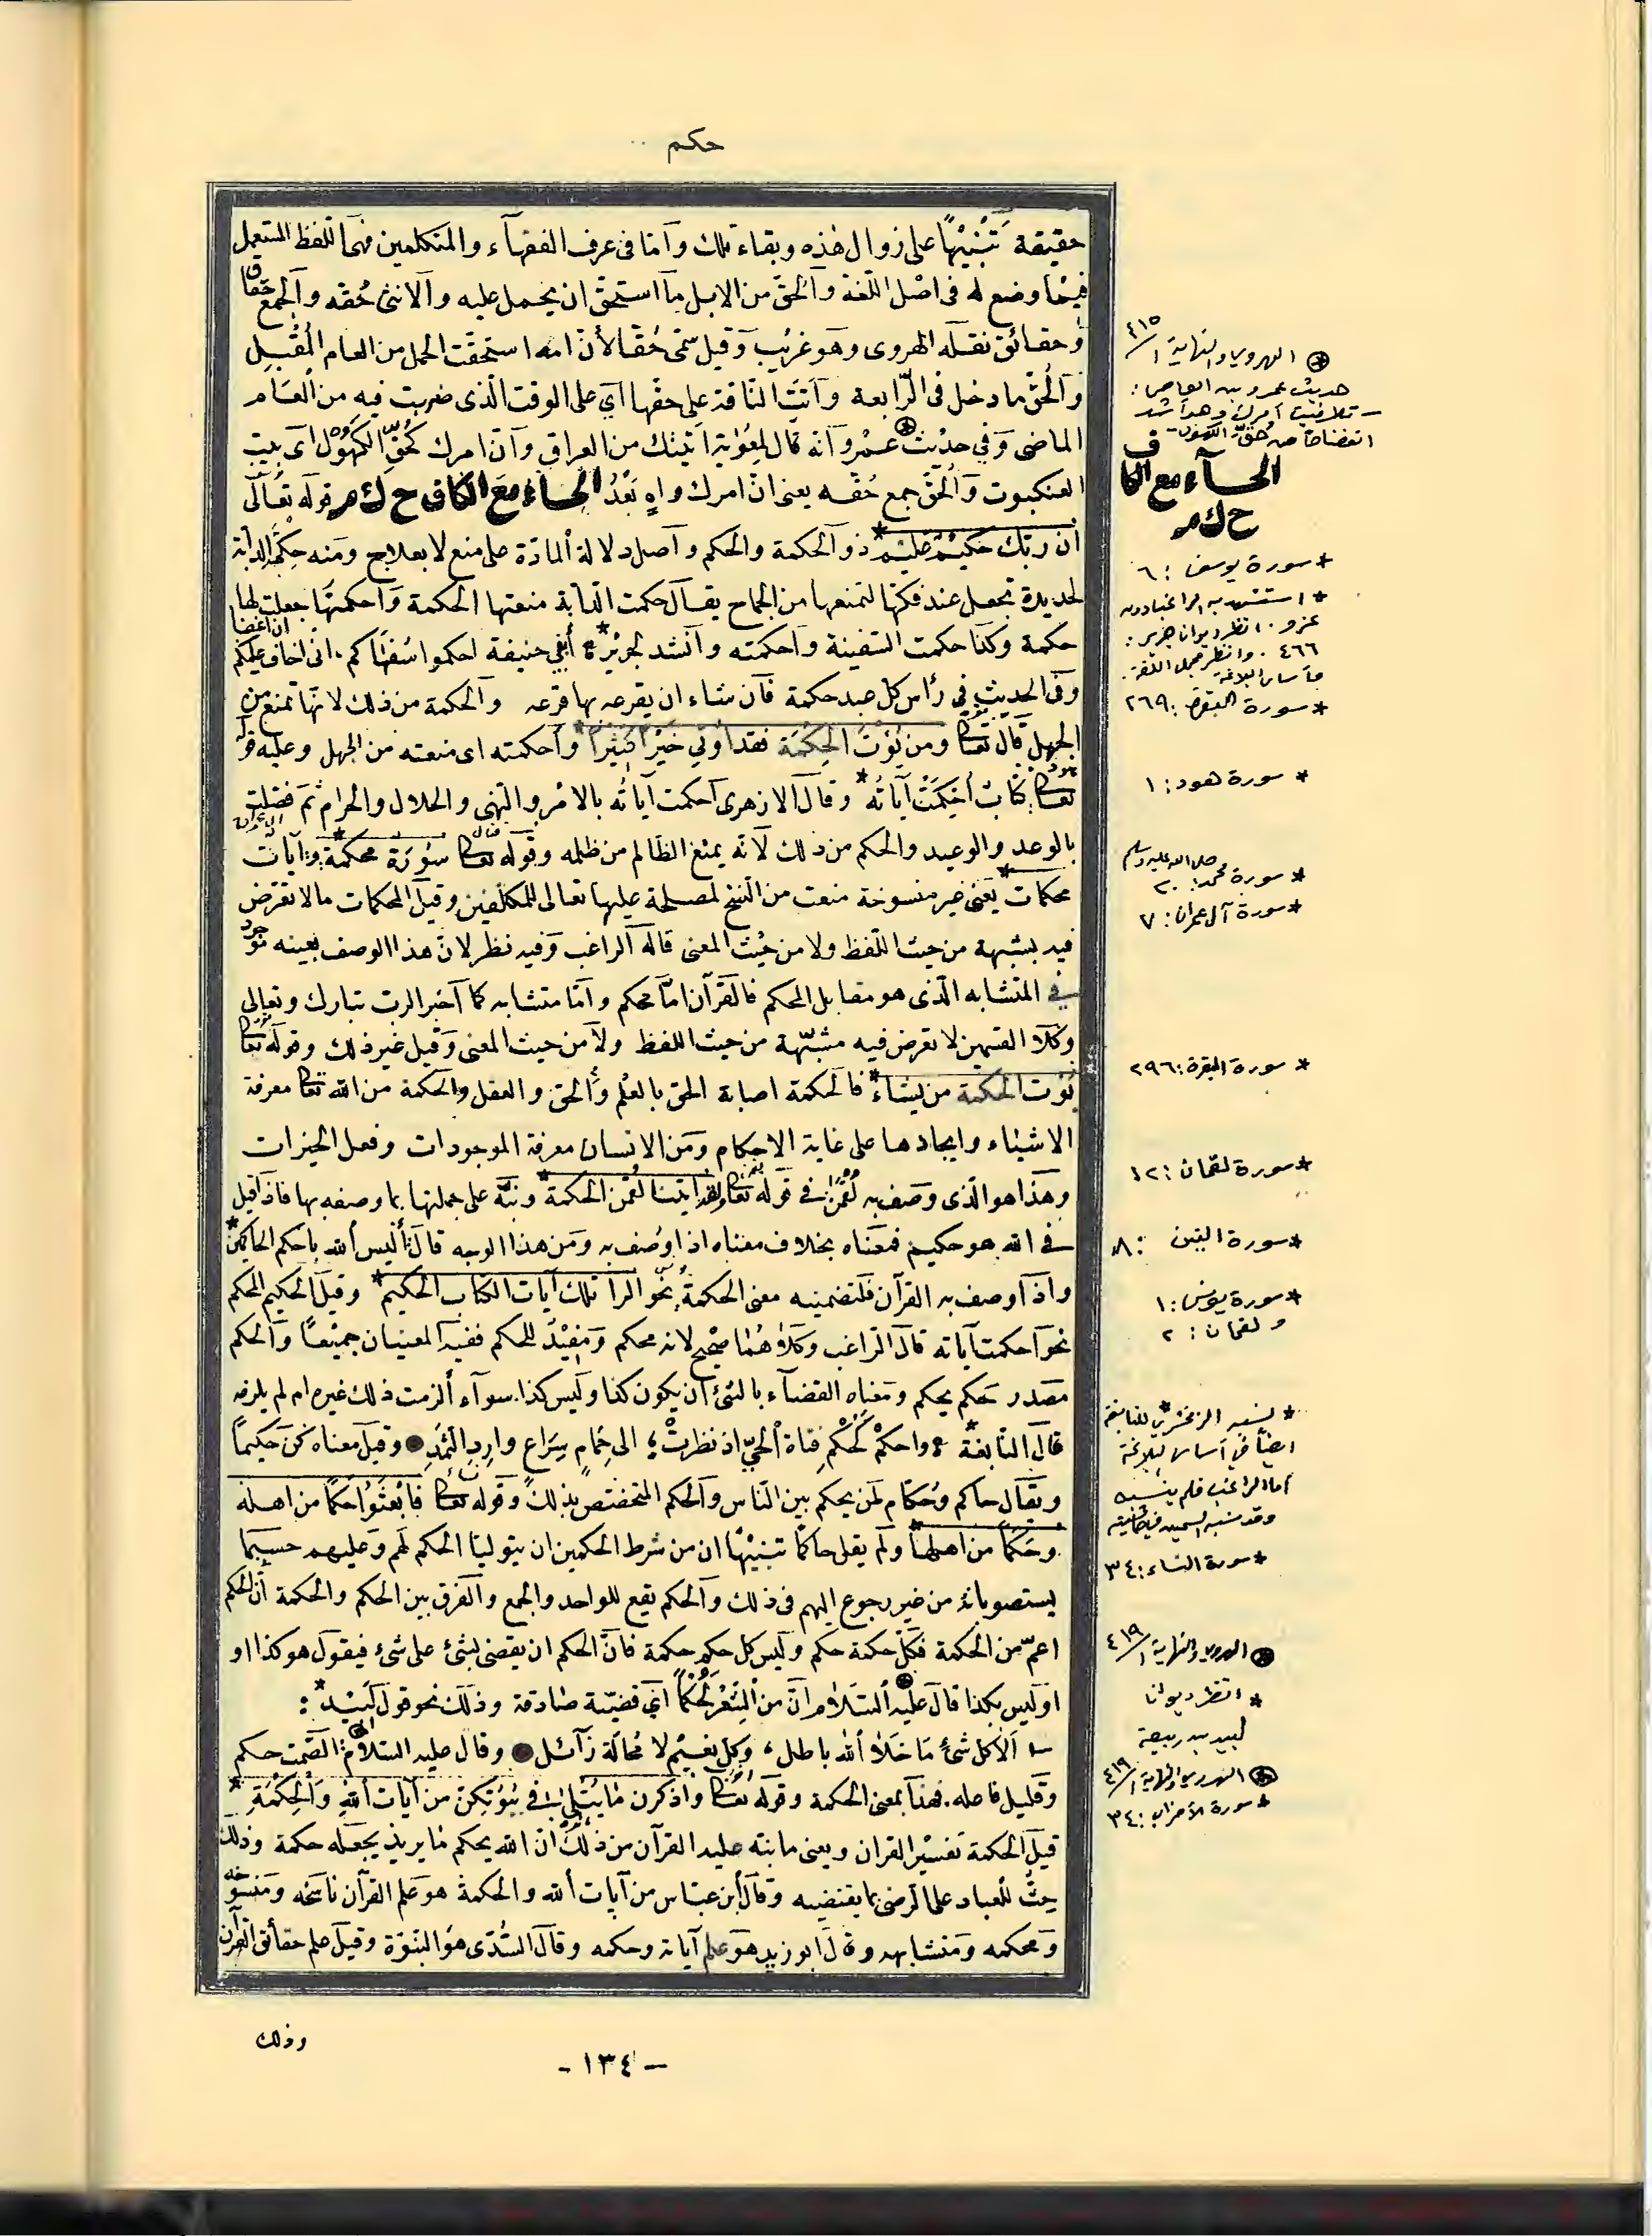 حكم
حقيقة تنبيهًا على زوال هذه وبقاء تلك وأما فى عرف الفقهاء والمتكلمين فهما اللفظ المستعمل
فيما وضع له فى اصل اللغة والحق من الابل ما استحق ان يحمل عليه والانثى حُقه والجمع حقاق
وحقائق نقله الهروى وهو غريب وقيل سمى حُقا لأن امه استحقت الحمل من العام المقبل
والحُق ما دخل فى الرابعة وأتت الناقة على حقها اى على الوقت الذى ضربت فيه من العام
الماضى وفي حديث عمرو أنه قال لمعوية اتيتك من العراق وان امرك كحُقّ الكهول اى بيت
العنكبوت والحُق جمع حُقه يعنى ان امرك واهٍ بَعْدُ الحاء مع الكاف ح ك م قوله تعالى
ان ربك حكيم عليم* ذو الحكمة والحكم واصل دلالة المادة على منع لاصلاح ومنه حكمة الدابة
لحديدة تجعل عند فكها لتمنعها من الجماح يقال حكمت الدابة منعتها الحكمة واحكمتها جعلت لها
حكمة وكذا حكمت السفينة واحكمته وانشد لجرير* أبني حنيفة احكموا سفهاكم . انى اخاف عليكم ان اغضبا
وفى الحديث في رأس كل عبد حكمة فان شاء ان يقدعه بها قدعه والحكمة من ذلك لانها تمنع من
الجهل قال تعالى ومن يؤت الحكمة فقد أوتي خيرًا كثيرًا* وأحكمته اى منعته من الجهل وعليه قوله
تعالى كتاب أحكمت آياته* وقال الازهرى أحكمت آياته بالامر والنهى والحلال والحرام ثم فصلت
بالوعد والوعيد والحكم من ذلك لانه يمنع الظالم من ظلمه وقوله تعالى سورة محكمة* وآيات
محكمات* يعنى غير منسوخة منعت من النسخ لمصلحة عليها تعالى للمكلفين وقيل المحكمات ما لا تعرض
فيه بشبهة من حيث اللفظ ولا من حيث المعنى قاله الراغب وفيه نظر لان هذا الوصف بعينه موجود
في المتشابه الذى هو مقابل المحكم فالقرآن اما محكم واما متشابه كما أخبر الرب تبارك وتعالى
وكلا القسمين لا تعرض فيه مشبّهة من حيث اللفظ ولا من حيث المعنى وقيل غير ذلك وقوله تعالى
يؤت الحكمة من يشاء* فالحكمة اصابة الحق بالعلم والحق والعقل والحكمة من الله تعالى معرفة
الاشياء وايجادها على غاية الاحكام ومن الانسان معرفة الموجودات وفعل الخيرات
وهذا هو الذى وصف به لقمن في قوله تعالى ولقد اتينا لقمن الحكمة* ونبّه على جملتها بما وصفه بها فاذا قيل
في الله هو حكيم فمعناه بخلاف معناه اذا وُصف به ومن هذا الوجه قال أليس الله باحكم الحاكمين*
واذا وصف به القرآن فلتضمينه معنى الحكمة نحو الرا تلك آيات الكتاب الحكيم* وقيل الحكيم المحكم
نحو أحكمت آياته قال الراغب وكلاهما صحيح لانه محكم ومفيد للحكم ففيه المعنيان جميعًا والحكم
مصدر حكم يحكم ومعناه القضاء بالشئ ان يكون كذا وليس كذا . سواء ألزمت ذلك غيره ام لم يلزمه
قال النابغة* واحكمْ كحكم فتاة الحيّ اذ نظرت ؛ الى حمام سراع وارد الثمد ● وقيل معناه كن حكيمًا
ويقال حاكم وحكام لمن يحكم بين الناس والحكم المتخصص بذلك وقوله تعالى فابعثوا حكمًا من اهله
وحكمًا من اهلها* ولم يقل حاكمًا تنبيهًا ان من شرط الحكمين ان يتوليا الحكم لهم وعليهم حسبما
يستصوبانه من غير رجوع اليهم فى ذلك والحكم يقع للواحد والجمع والفرق بين الحكم والحكمة ان الحكم
اعمّ من الحكمة فكل حكمة حكم وليس كل حكم حكمة فان الحكم ان يقضى بشئ على شئ فيقول هو كذا او
او ليس بكذا قال عليه السلام ان من الشعر لحكمًا اى قضيّة صادقة وذلك نحو قول لبيد* :
ألا كل شئ ما خلا الله باطل ، وكل نعيم لا محالة زائل ● وقال عليه السلام : الصمت حكم
وقليل فاعله . فهذا بمعنى الحكمة وقوله تعالى واذكرن ما يتلى في بيوتكن من آيات الله والحكمة *
قيل الحكمة تفسير القران ويعنى ما نبّه عليه القرآن من ذلك ان الله يحكم ما يريد يجعله حكمة وذلك
حثٌّ للعباد على الرضى بما يقتضيه وقال ابن عباس من آيات الله والحكمة هو علم القرآن ناسخه ومنسوخه
ومحكمه ومتشابهه وقال ابو زيد هو علم آياته وحكمه وقال السُّدّى هو النبوّة وقيل علم حقائق القرآن
وذلك
- ١٣٤ -
الهروي والنهاية ١/٤١٥
حديث عمرو بن العاص :
- تلافيت أمرك وهو أشد
انفضاجا من حُقّ الكهول -
الحاء مع الكاف
ح ك م
* سورة يوسف : ٦
* استشهد به الراغب دون
عزو . انظر ديوان جرير :
٤٦٦ . وانظر مجمل اللغة .
وأساس البلاغة
* سورة البقرة : ٢٦٩
* سورة هود : ١
* سورة محمد صلى الله عليه وسلم : ٢٠
* سورة آل عمران : ٧
* سورة البقرة : ٢٩٦
* سورة لقمان : ١٢
* سورة التين : ٨
* سورة يونس : ١
ولقمان : ٢
* نسبه الزمخشري للنابغة
ايضاً في أساس البلاغة
أما الراغب فلم ينسبه
وقد نسبه السمين
* سورة النساء : ٣٤
الهروي والنهاية ١/٤١٩
* انظر ديوان
لبيد بن ربيعة
الهروي والنهاية ١/٤١٩
* سورة الأحزاب : ٣٤